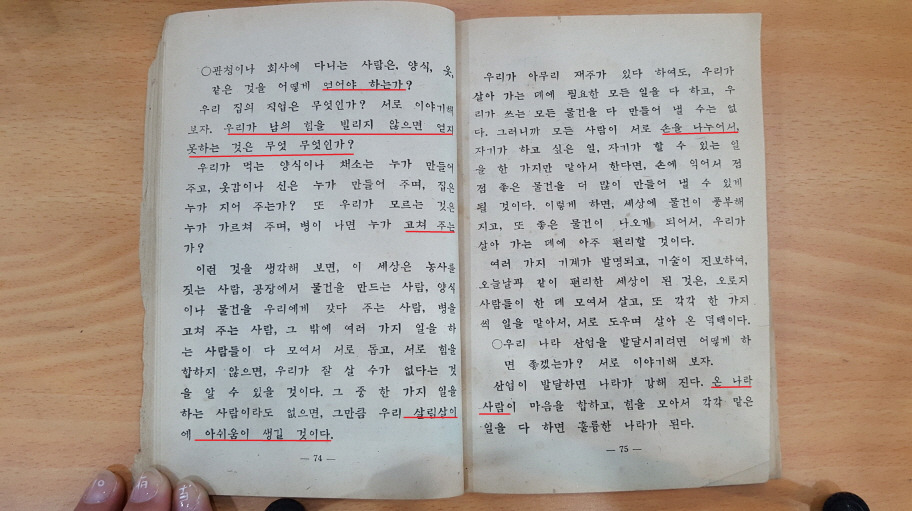 ○관청이나 회사에 다니는 사람은, 양식, 옷,
같은 것을 어떻게 얻어야 하는가?
우리 집의 직업은 무엇인가? 서로 이야기해
보자. 우리가 남의 힘을 빌리지 않으면 얻지
못하는 것은 무엇 무엇인가?
우리가 먹는 양식이나 채소는 누가 만들어
주고, 옷감이나 신은 누가 만들어 주며, 집은
누가 지어 주는가? 또 우리가 모르는 것은
누가 가르쳐 주며, 병이 나면 누가 고쳐 주는
가?
이런 것을 생각해 보면, 이 세상은 농사를
짓는 사람, 공장에서 물건을 만드는 사람, 양식
이나 물건을 우리에게 갖다 주는 사람, 병을
고쳐 주는 사람, 그 밖에 여러 가지 일을 하
는 사람들이 다 모여서 서로 돕고, 서로 힘을
합하지 않으면, 우리가 잘 살 수가 없다는 것
을 알 수 있을 것이다. 그 중 한 가지 일을
하는 사람이라도 없으면, 그만큼 우리 살림살이
에 아쉬움이 생길 것이다.
— 74 —
우리가 아무리 재주가 있다 하여도, 우리가
살아 가는 데에 필요한 모든 일을 다 하고, 우
리가 쓰는 모든 물건을 다 만들어 낼 수는 없
다. 그러니까 모든 사람이 서로 손을 나누어서,
자기가 하고 싶은 일, 자기가 할 수 있는 일
을 한 가지만 맡아서 한다면, 손에 익어서 점
점 좋은 물건을 더 많이 만들어 낼 수 있게
될 것이다. 이렇게 하면, 세상에 물건이 풍부해
지고, 또 좋은 물건이 나오게 되어서, 우리가
살아 가는 데에 아주 편리할 것이다.
여러 가지 기계가 발명되고, 기술이 진보하여,
오늘날과 같이 편리한 세상이 된 것은, 오로지
사람들이 한 데 모여서 살고, 또 각각 한 가지
씩 일을 맡아서, 서로 도우며 살아 온 덕택이다.
○우리 나라 산업을 발달시키려면 어떻게 하
면 좋겠는가? 서로 이야기해 보자.
산업이 발달하면 나라가 강해 진다. 온 나라
사람이 마음을 합하고, 힘을 모아서 각각 맡은
일을 다 하면 훌륭한 나라가 된다.
— 75 —